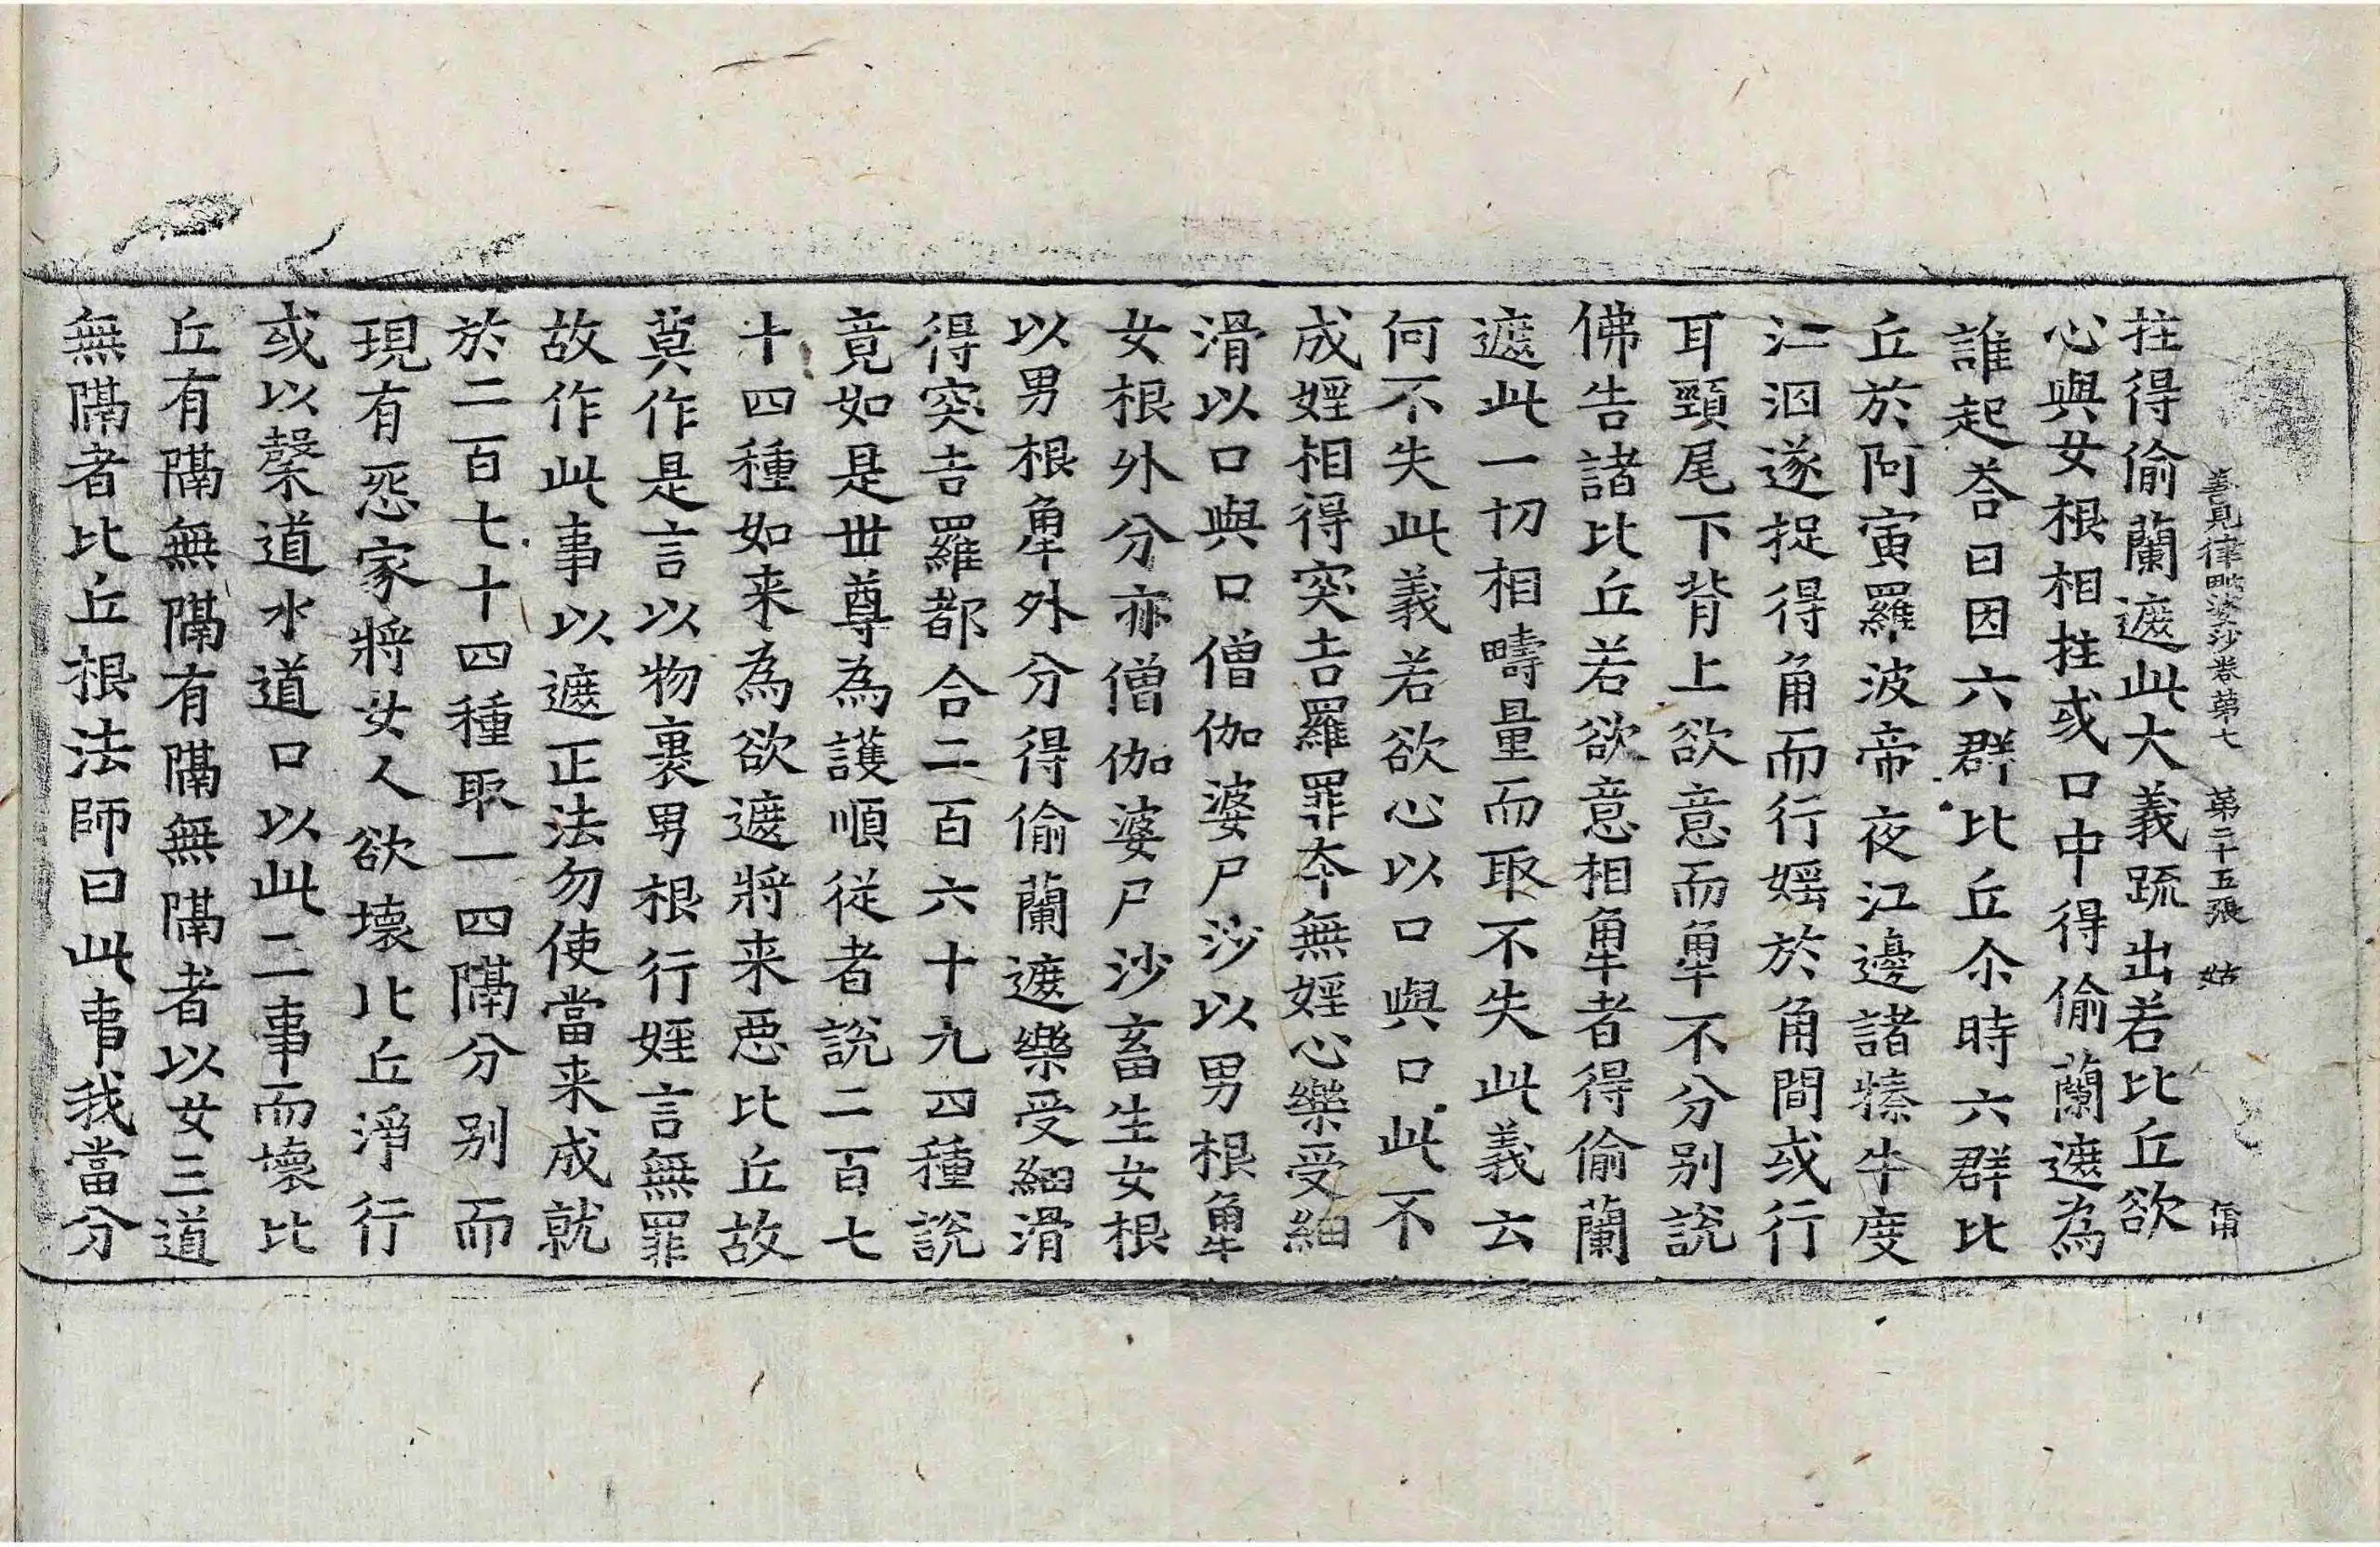 善見律毗婆沙卷第七 第二十五張 姑
拄得偷蘭遮此大義䟽出若比丘欲
心與女根相拄或口中得偷蘭遮為
誰起荅曰因六群比丘尒時六群比
丘於阿寅羅波帝夜江邊諸㹌牛度
江洄遂捉得角而行婬於角間或行
耳頸尾下背上欲意而𧢻不分别說
佛告諸比丘若欲意相𧢻者得偷蘭
遮此一切相疇量而取不失此義云
何不失此義若欲心以口與口此不
成婬相得突吉羅罪夲無婬心樂受細
滑以口與口僧伽婆尸沙以男根𧢻
女根外分亦僧伽婆尸沙畜生女根
以男根𧢻外分得偷蘭遮樂受細滑
得突吉羅都合二百六十九四種說
竟如是世尊為護順從者說二百七
十四種如来為欲遮將来惡比丘故
莫作是言以物裹男根行婬言無罪
故作此事以遮正法勿使當来成就
於二百七十四種取一四隔分别而
現有惡家將女人欲壞比丘淨行
或以槃道水道口以此二事而壞比
丘有隔無隔有隔無隔者以女三道
無隔者比丘根法師曰此事我當分